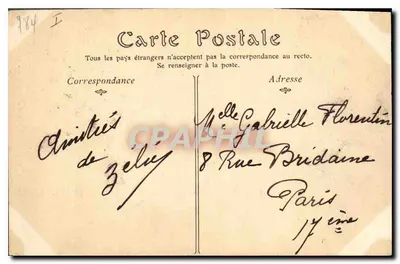 384 I
Carte Postale
Tous les pays étrangers n'acceptent pas la correspondance au recto.
Se renseigner à la poste.
Correspondance
Adresse
Amitiés
de
Melle Gabrielle Florentin
8 Rue Bridaine
Paris
17ème
CPAPHIL